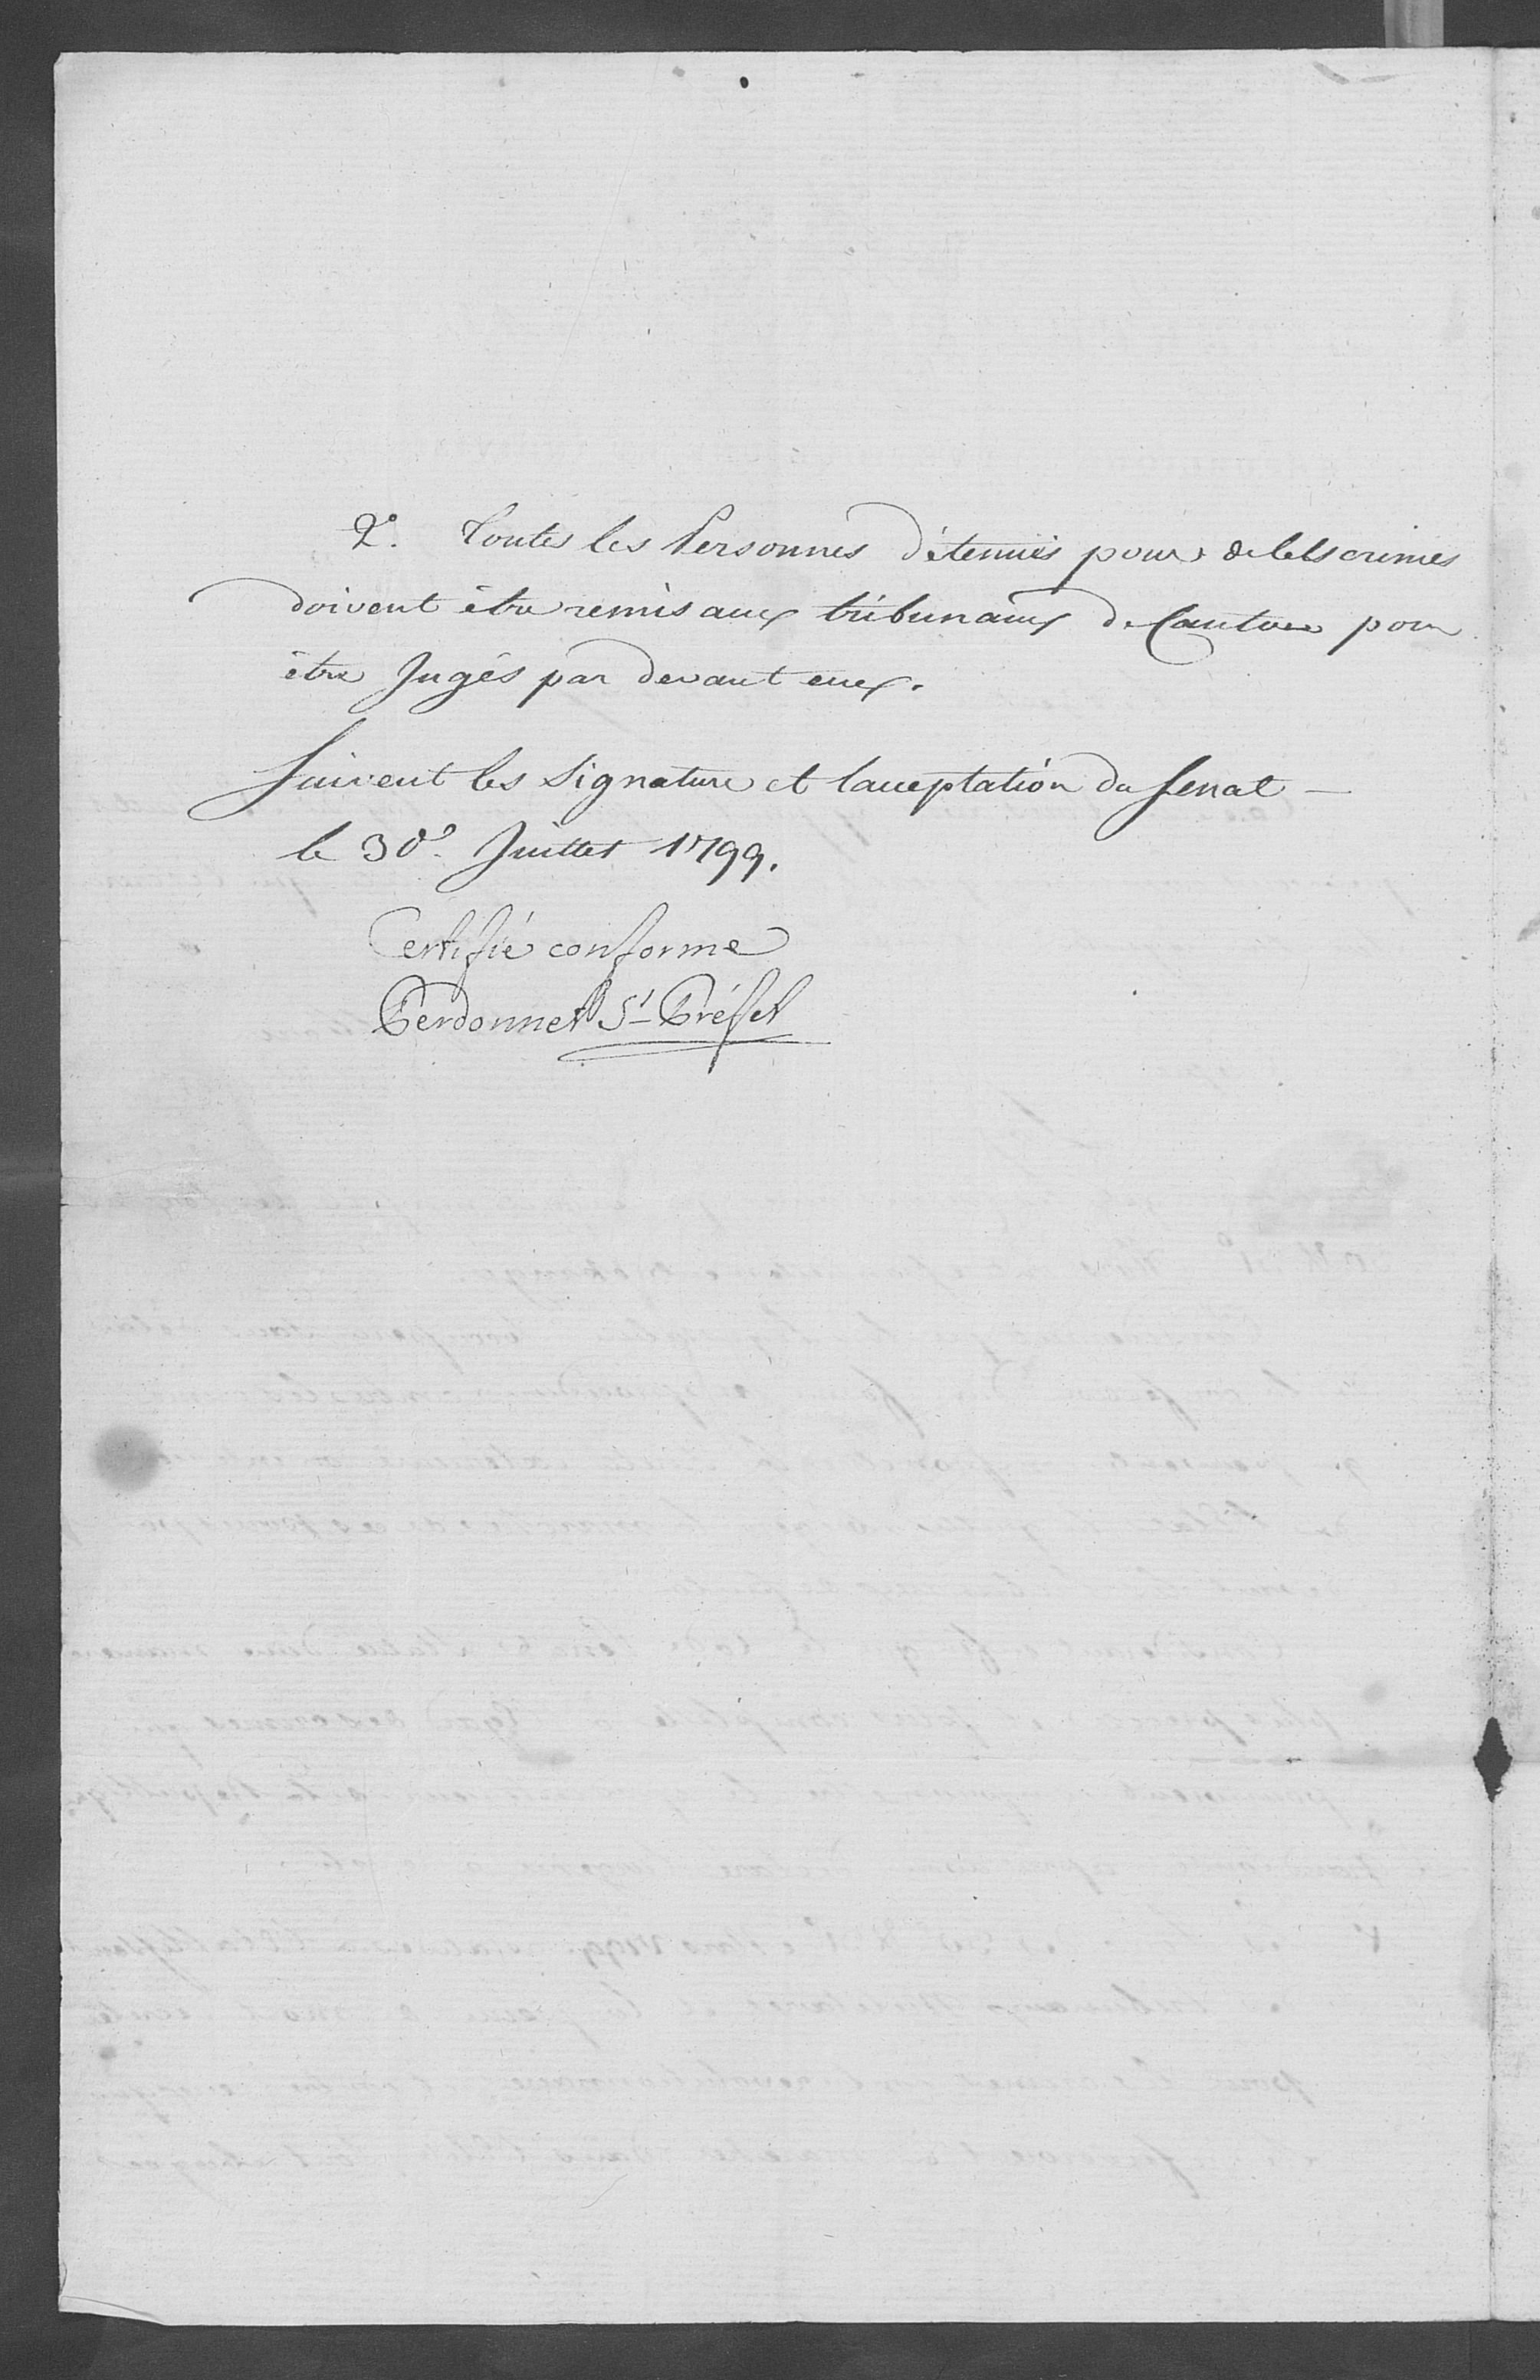 2°. Toutes les Personnes détenuës pour de tels crimes
doivent être remis aux tribunaux de Canton pour
être Jugés par devant eux.
Suivent les Signature et l'acceptation du Senat —
le 30e. Juillet 1799.
Certifié conforme
Perdonnet St Préfet